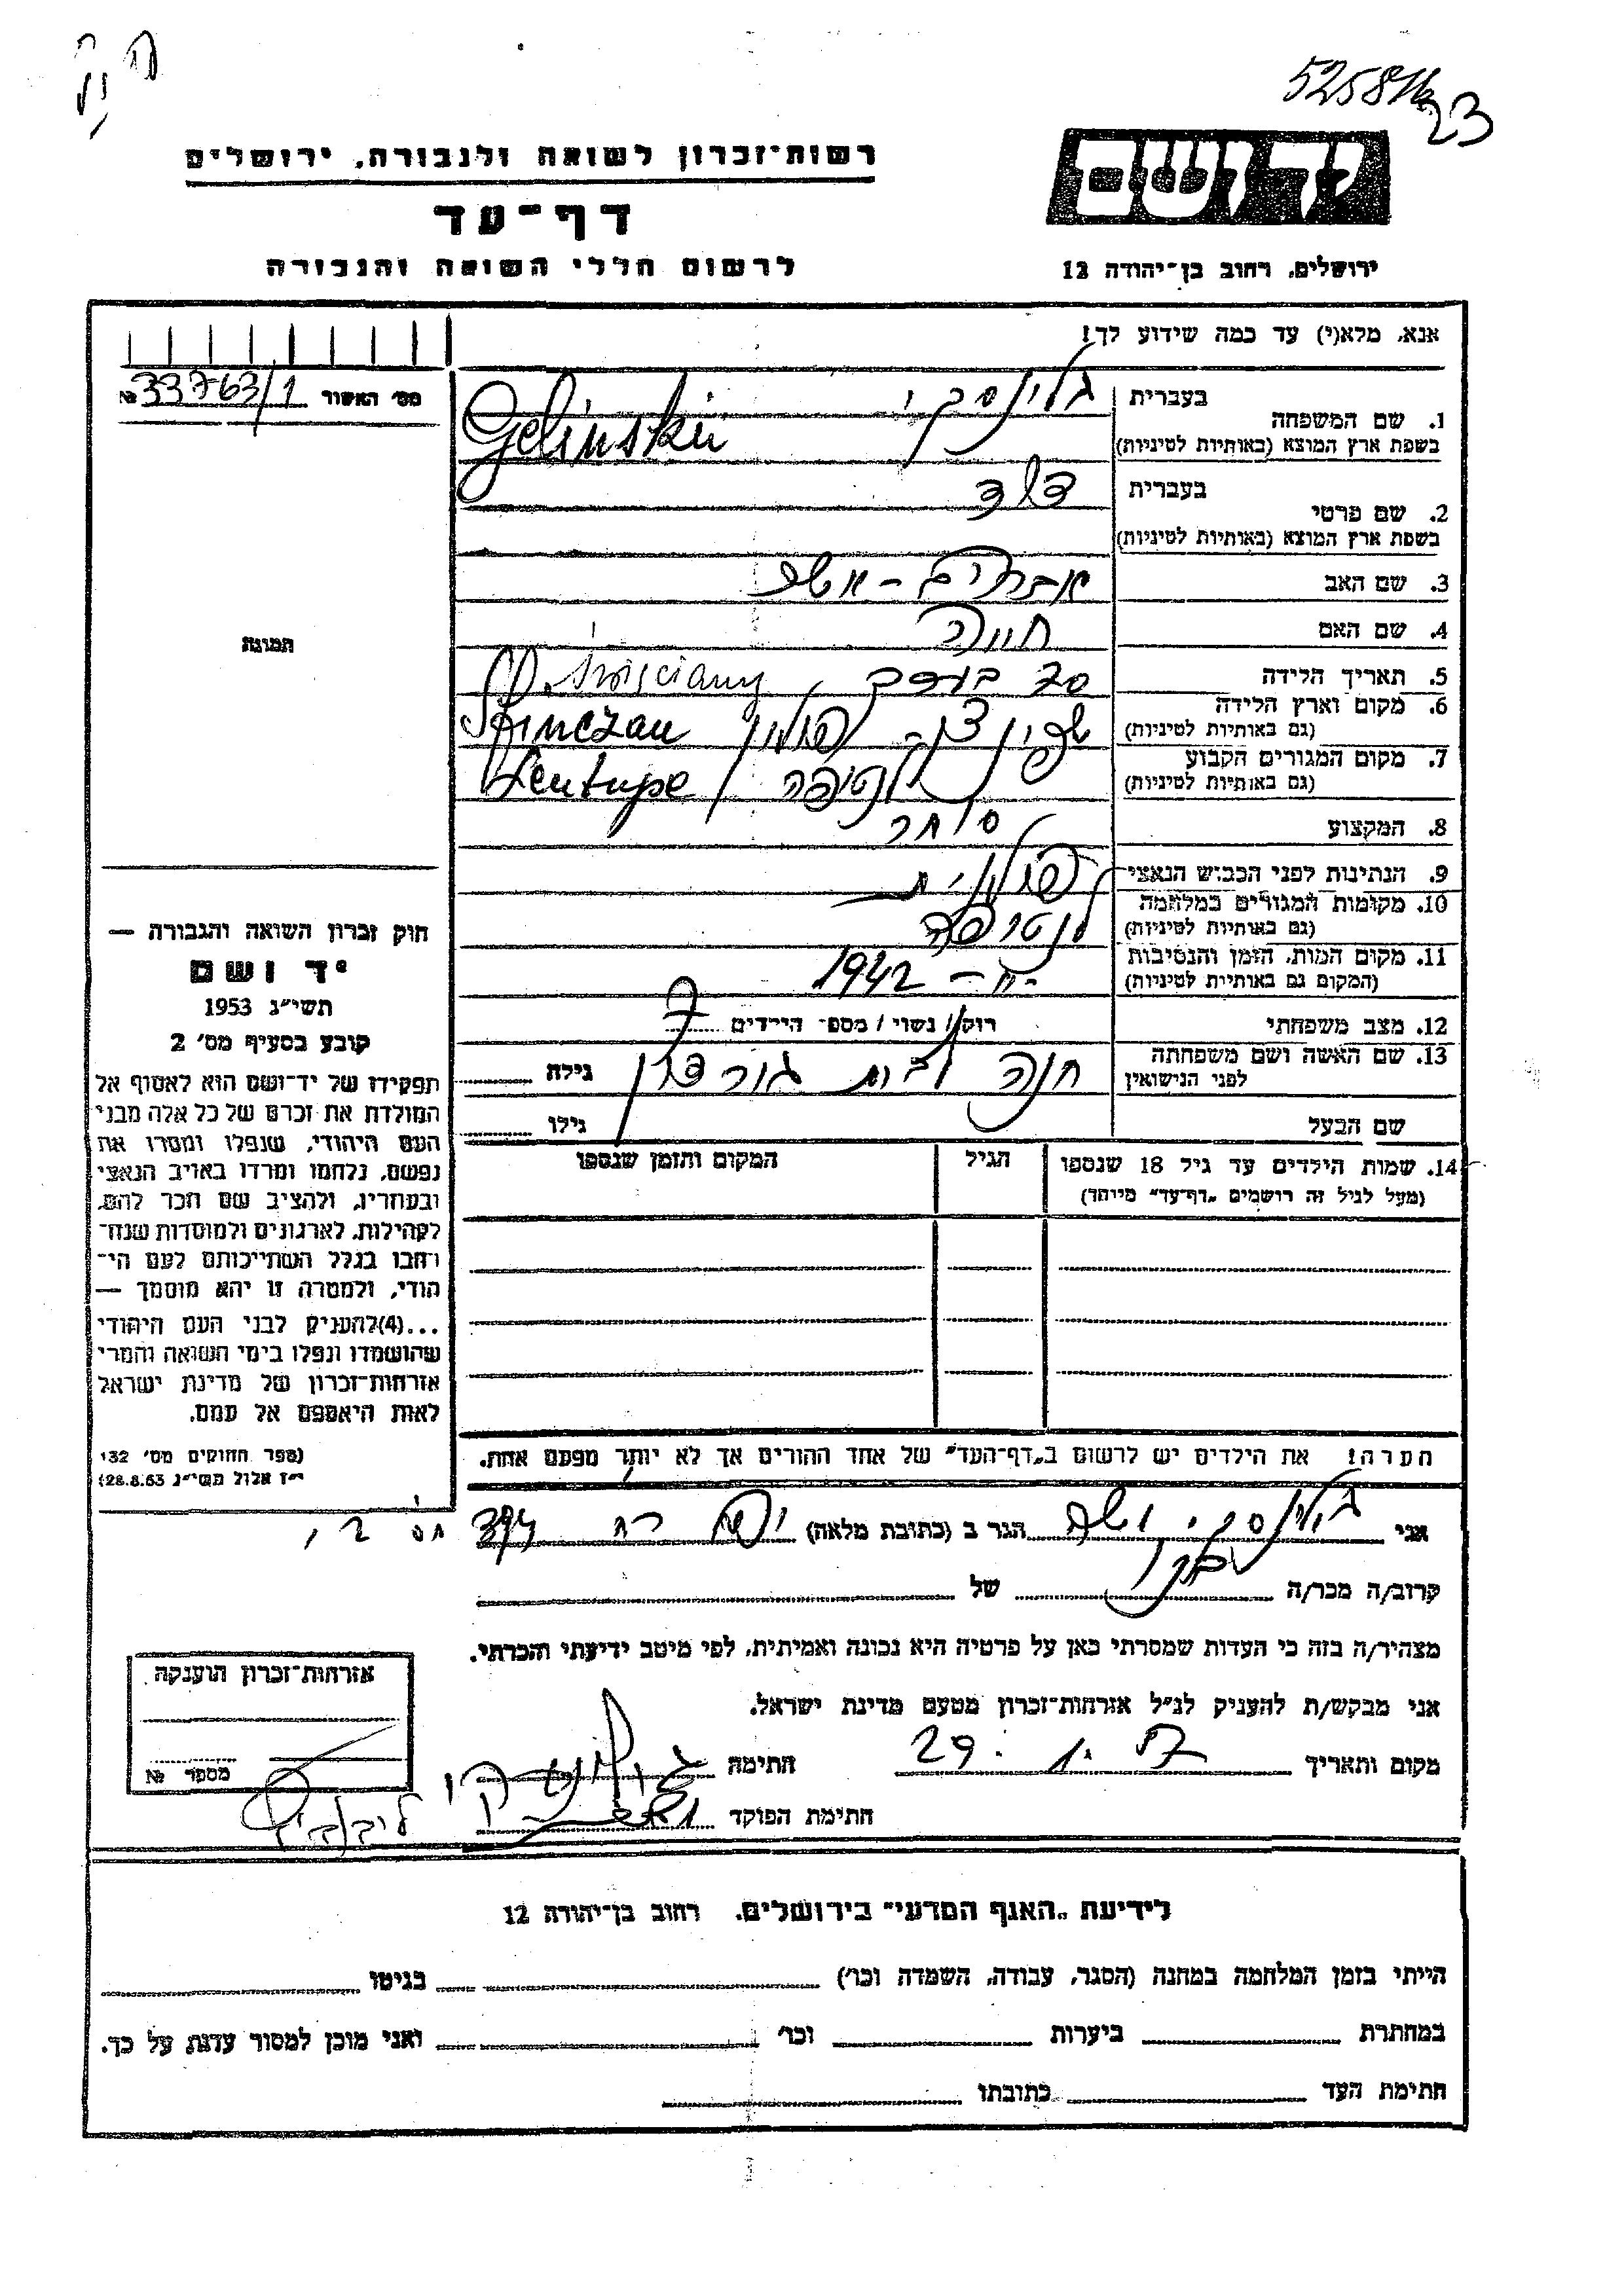 5258 16 23
יד ושם
ירושלים, רחוב בן־יהודה 12
רשות־זכרון לשואה ולגבורה, ירושלים
דף־עד
לרשום חללי השואה והגבורה
אנא, מלא(י) עד כמה שידוע לך!
מס' האשור № 33763/1
1. שם המשפחה
בעברית גלינסקי
בשפת ארץ המוצא (באותיות לטיניות) Gelinskii
2. שם פרטי
בעברית דוד
בשפת ארץ המוצא (באותיות לטיניות)
3. שם האב אברהם - אשר
4. שם האם חוה
5. תאריך הלידה
6. מקום וארץ הלידה
(גם באותיות לטיניות) פולין
7. מקום המגורים הקבוע
(גם באותיות לטיניות) לנטופה Lentupe
8. המקצוע סוחר
9. הנתינות לפני הכבוש הנאצי פולנית
10. מקומות המגורים במלחמה
(גם באותיות לטיניות) לנטופה
11. מקום המות, הזמן והנסיבות
(המקום גם באותיות לטיניות) 1942
12. מצב משפחתי רוק/ נשוי / מספ־ הילדים 7
13. שם האשה ושם משפחתה
לפני הנישואין חנה לבית גורדון גילה
שם הבעל גילו
14. שמות הילדים עד גיל 18 שנספו
(מעל לגיל זה רושמים „דף־עד" מיוחד)
הגיל
המקום והזמן שנספו
הערה! את הילדים יש לרשום ב„דף־העד" של אחד ההורים אך לא יותר מפעם אחת.
תמונה
חוק זכרון השואה והגבורה —
יד ושם
תשי"ג 1953
קובע בסעיף מס' 2
תפקידו של יד־ושם הוא לאסוף אל
המולדת את זכרם של כל אלה מבני
העם היהודי, שנפלו ומסרו את
נפשם, נלחמו ומרדו באויב הנאצי
ובעוזריו, ולהציב שם וזכר להם,
לקהילות, לארגונים ולמוסדות שנח־
רבו בגלל השתייכותם לעם הי־
הודי, ולמטרה זו יהא מוסמך —
...(4)להעניק לבני העם היהודי
שהושמדו ונפלו בימי השואה והמרי
אזרחות־זכרון של מדינת ישראל
לאות היאספם אל עמם.
(ספר החוקים מס' 132
י"ז אלול תשי"ג 28.8.53)
אני גלינסקי אשר הגר ב (כתובת מלאה)
קרוב/ה מכר/ה בן של
מצהיר/ה בזה כי העדות שמסרתי כאן על פרטיה היא נכונה ואמיתית, לפי מיטב ידיעתי והכרתי.
אני מבקש/ת להעניק לנ"ל אזרחות־זכרון מטעם מדינת ישראל.
מקום ותאריך 29. חתימה
חתימת הפוקד
אזרחות־זכרון הוענקה
מספר №
לידיעת „האגף המדעי" בירושלים, רחוב בן־יהודה 12
הייתי בזמן המלחמה במחנה (הסגר, עבודה, השמדה וכו') בגיטו
במחתרת ביערות וכו' ואני מוכן למסור עדות על כך.
חתימת העד כתובתו